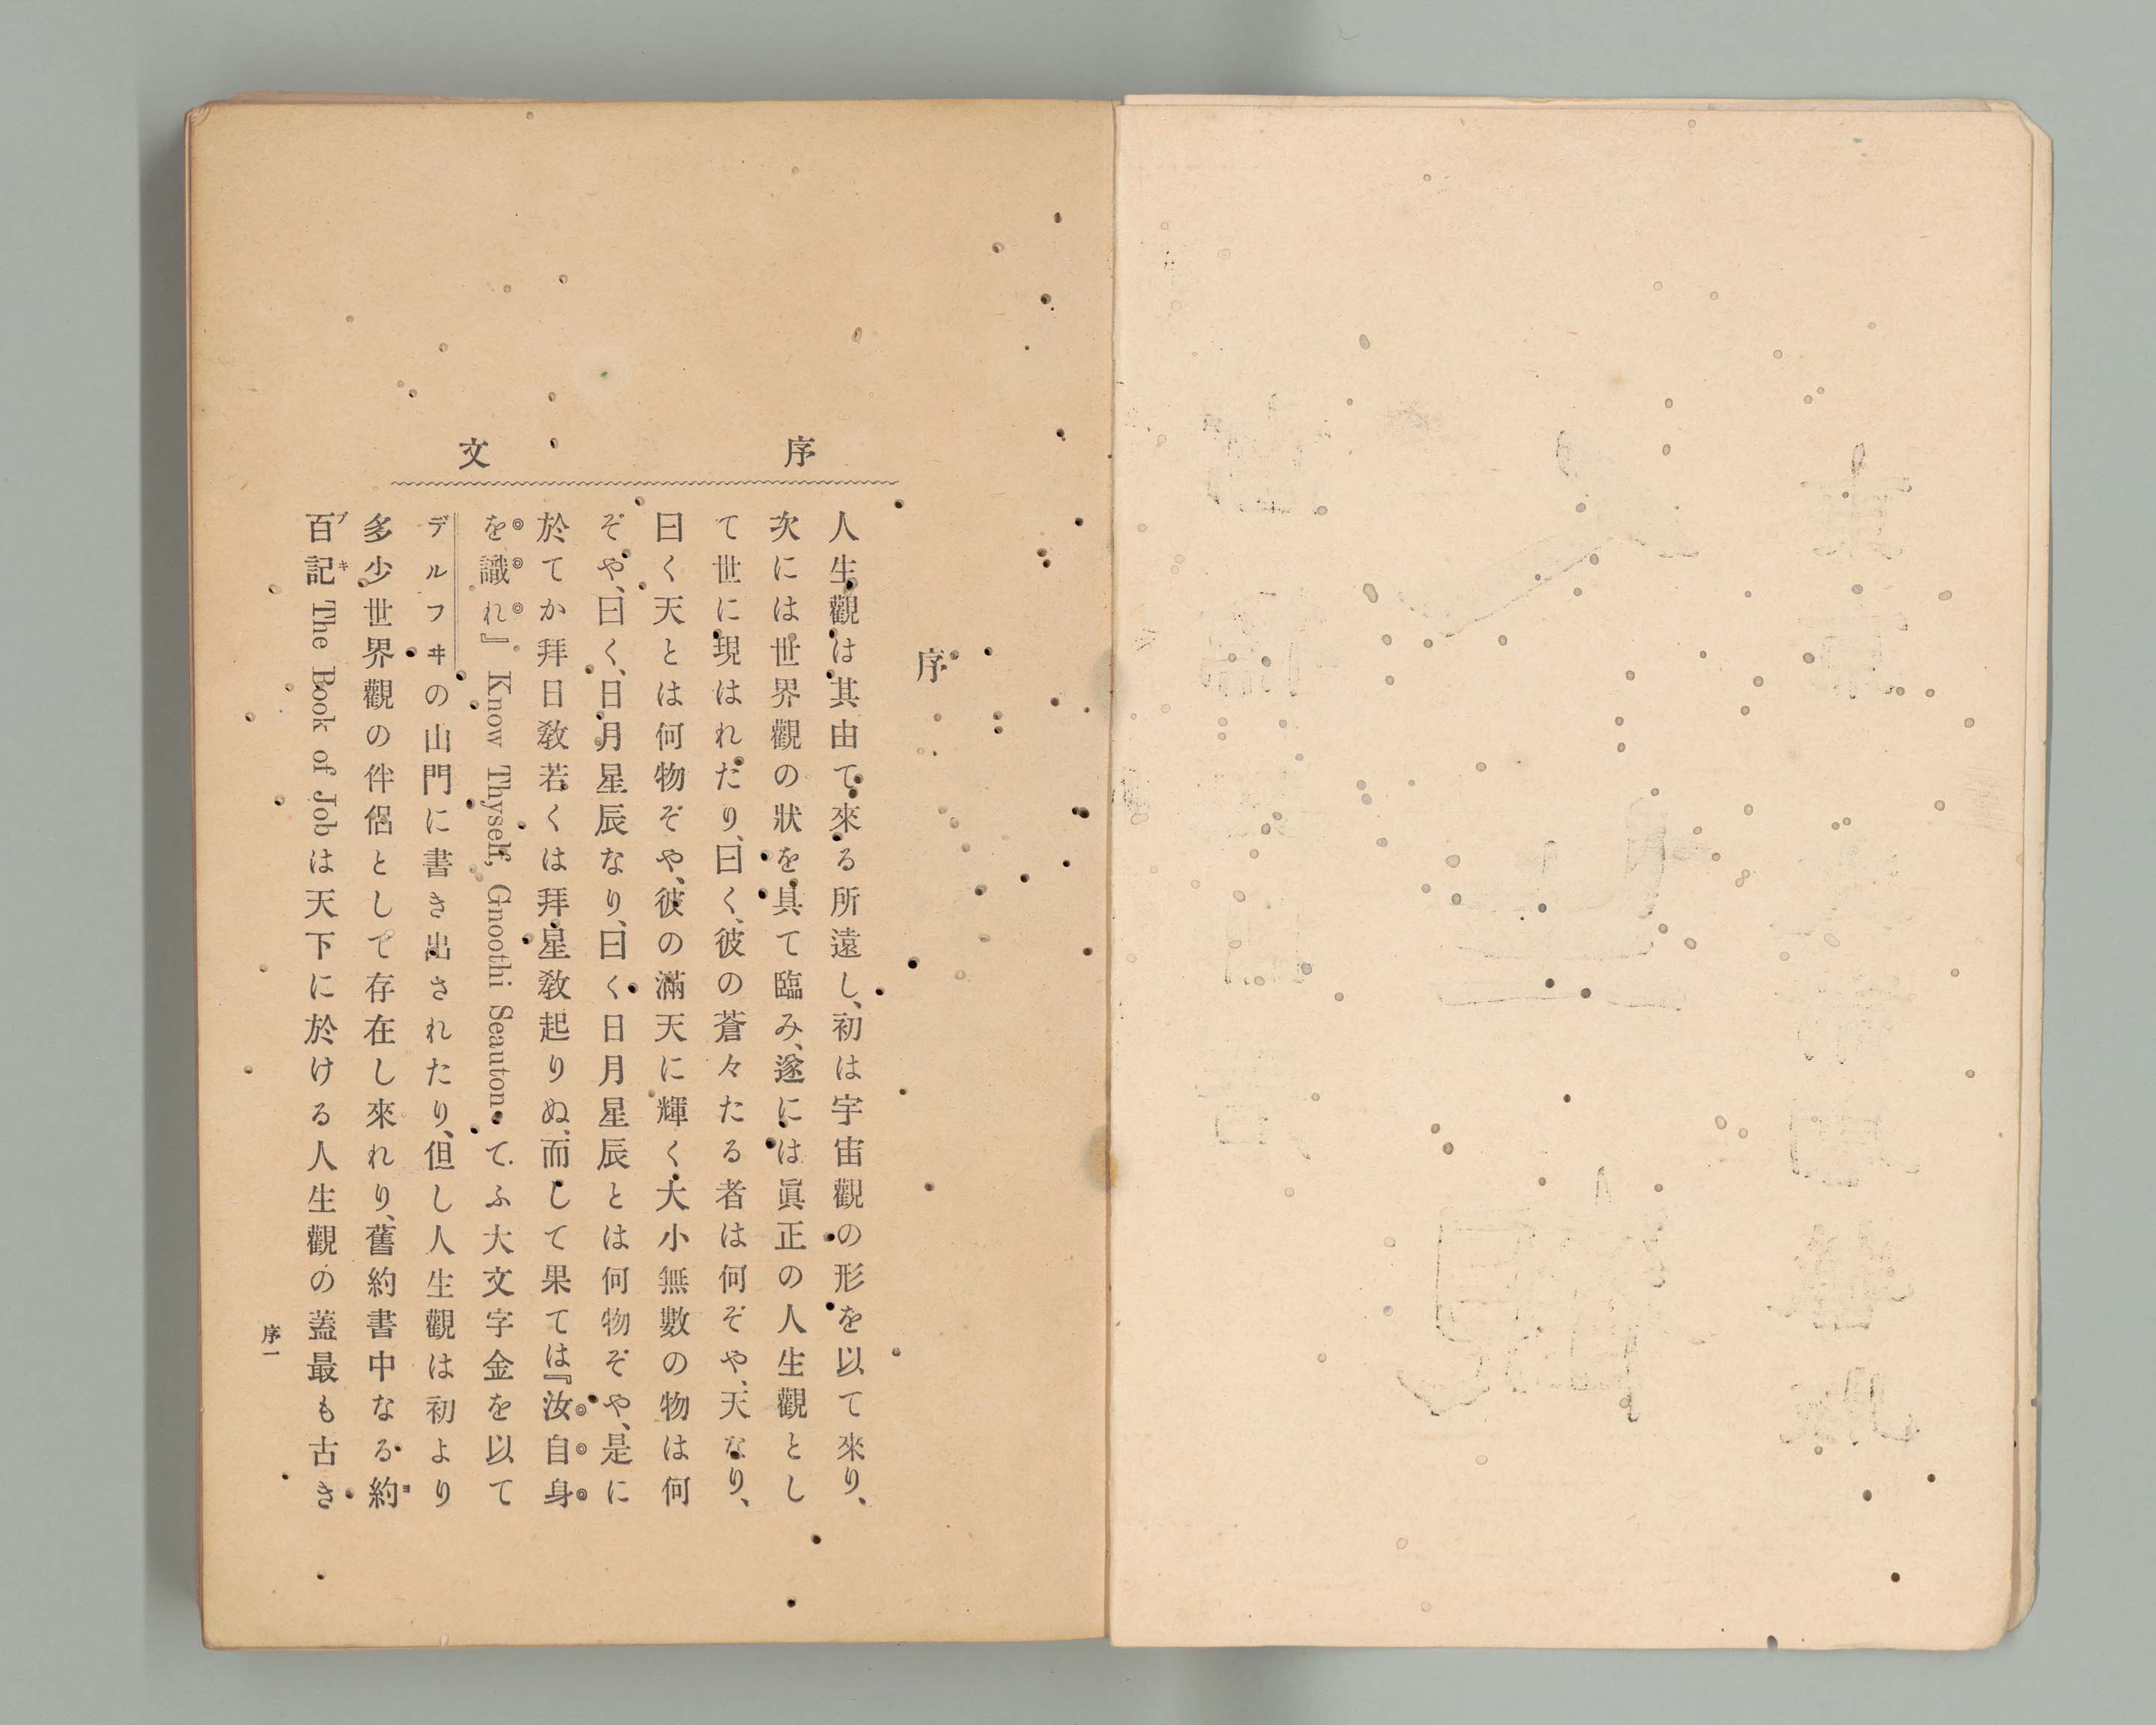 序文
序
人生觀は其由て來る所遠し、初は宇宙觀の形を以て來り、
次には世界觀の狀を具て臨み、遂には眞正の人生觀とし
て世に現はれたり、曰く、彼の蒼々たる者は何ぞや、天なり、
曰く天とは何物ぞや、彼の滿天に輝く大小無數の物は何
ぞや、曰く、日月星辰なり、曰く日月星辰とは何物ぞや、是に
於てか拜日敎若くは拜星敎起りぬ、而して果ては『汝自身
を識れ』 Know Thyself, Gnoothi Seauton. てふ大文字金を以て
デルフヰの山門に書き出されたり、但し人生觀は初より
多少世界觀の伴侶として存在し來れり、舊約書中なる約
百記 The Book of Job は天下に於ける人生觀の蓋最も古き
序一